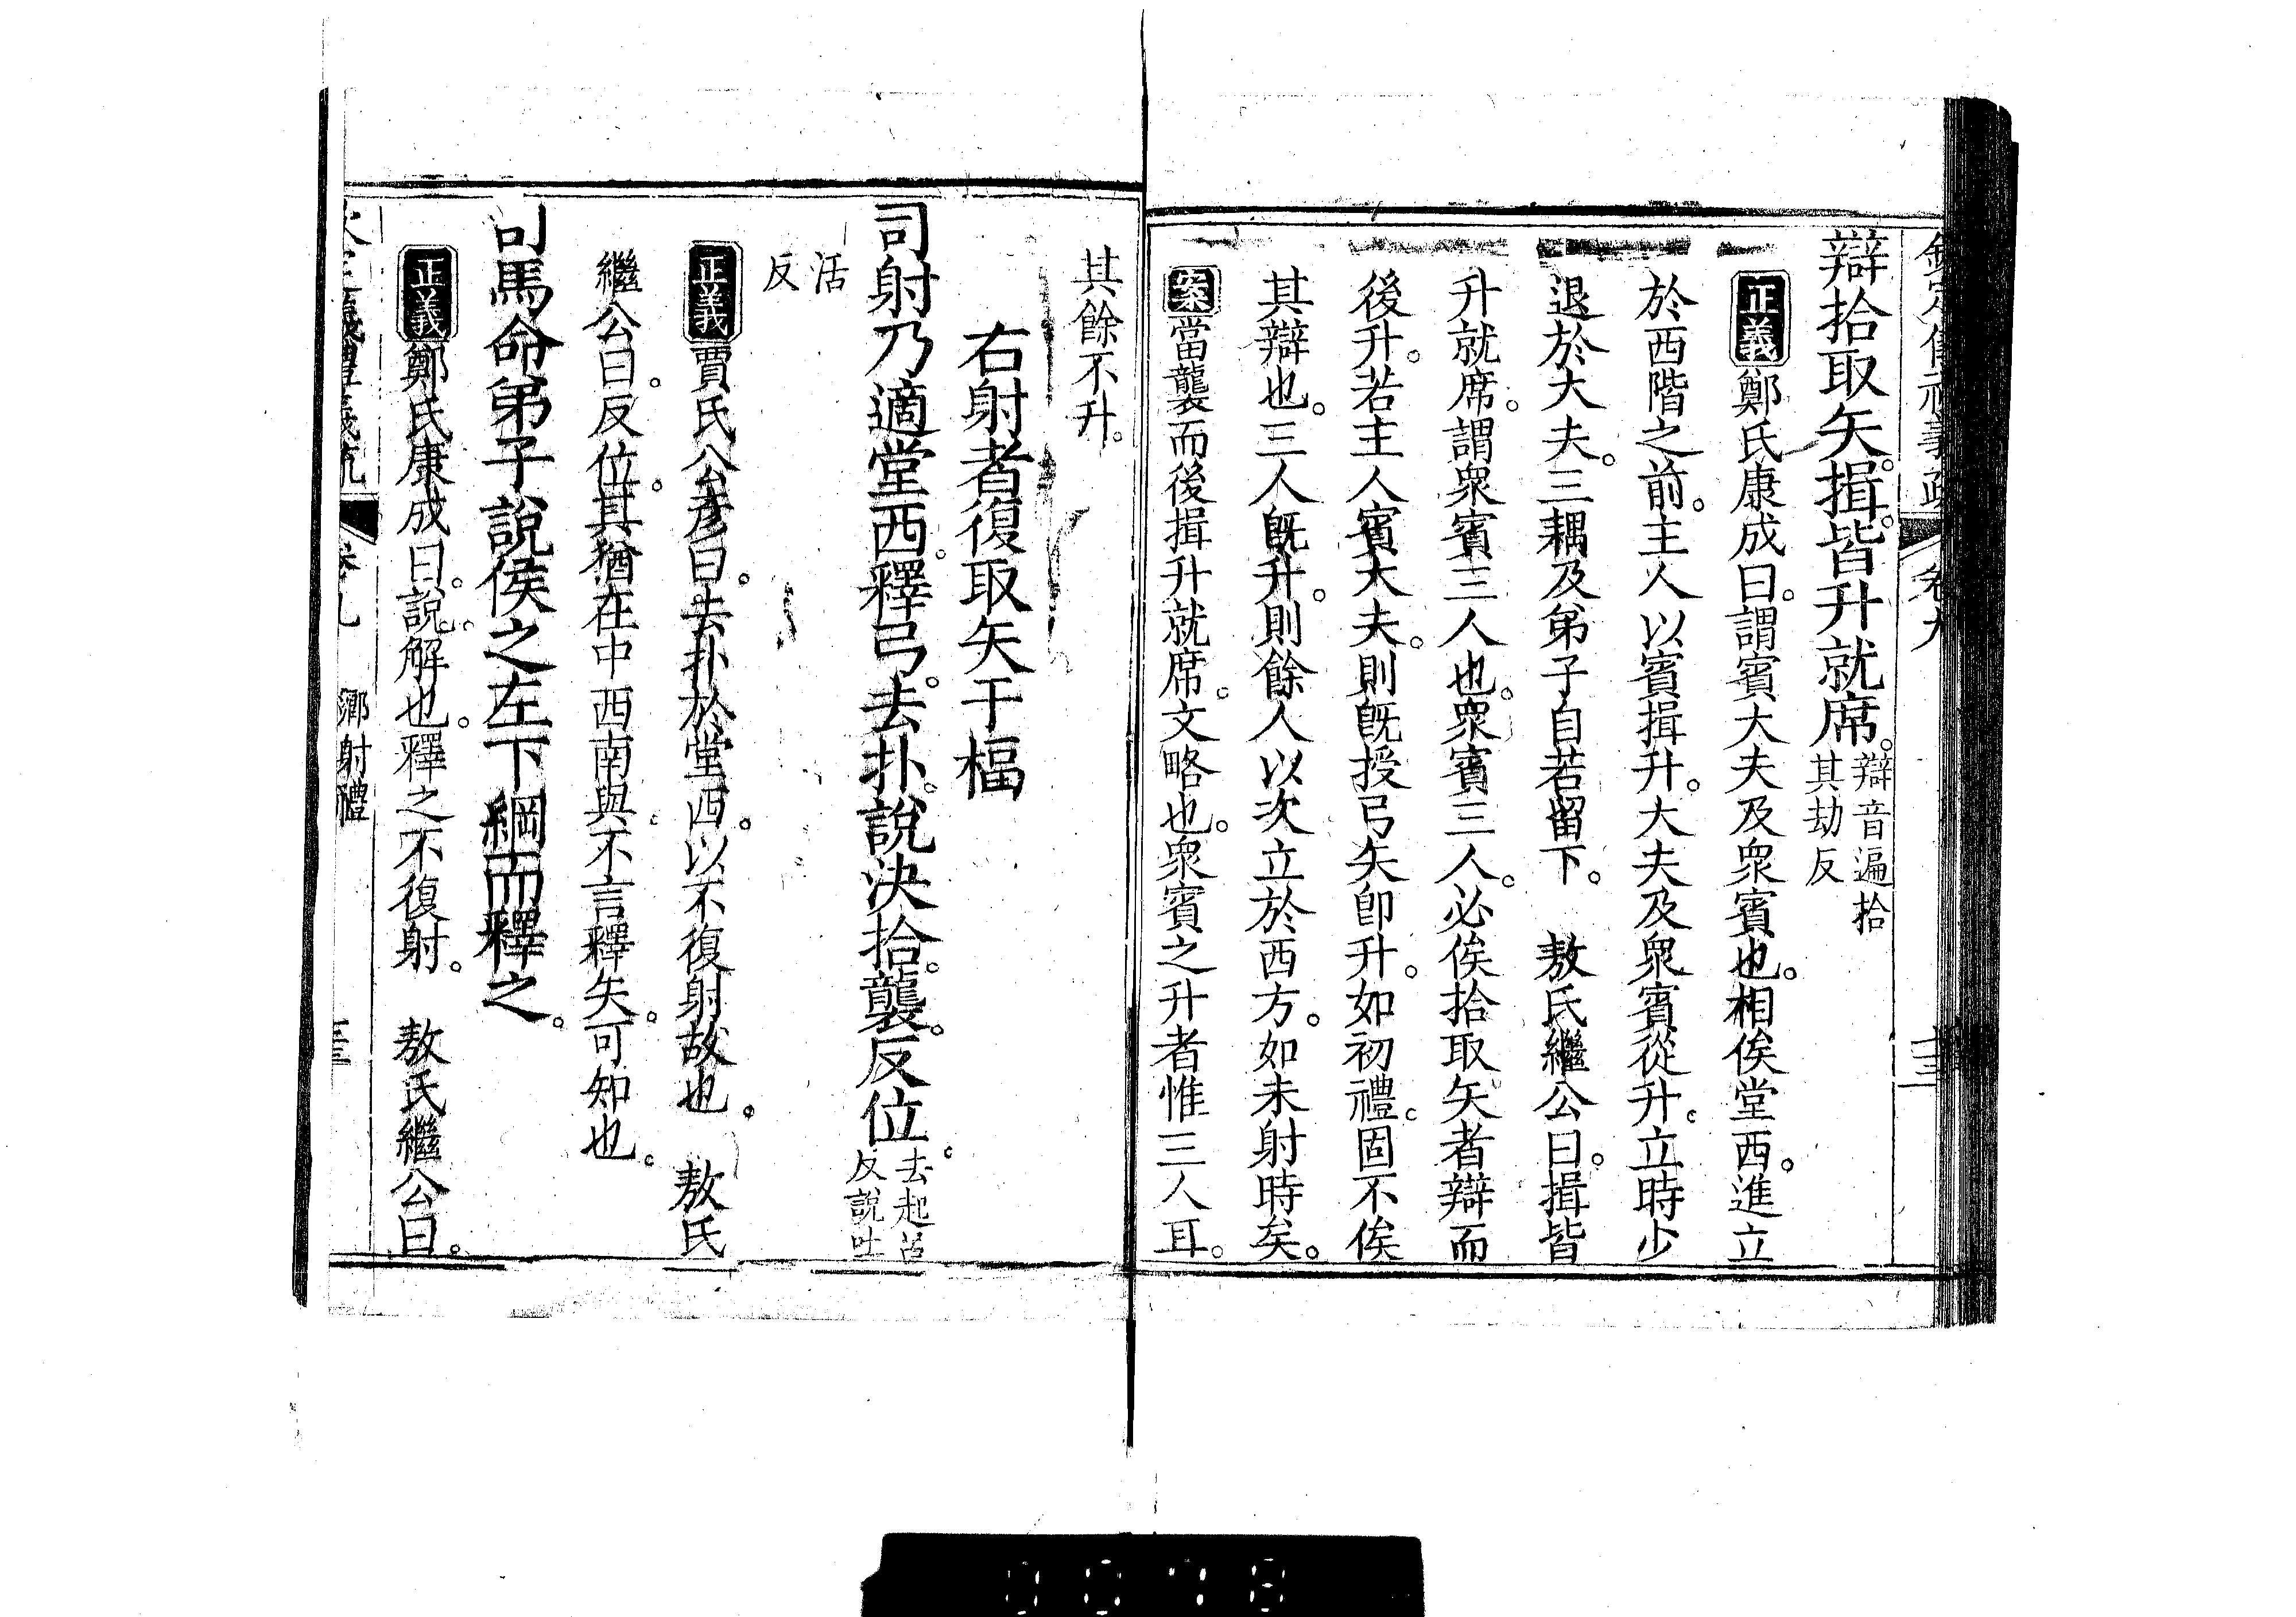 辯拾取矢。揖。皆升就席。辯音遍拾
其劫反
正義鄭氏康成曰。謂賓大夫及衆賓也。相俟堂西。進立
於西階之前。主人以賓揖升。大夫及衆賓從升。立時少
退於大夫。三耦及弟子自若留下。 敖氏繼公曰。揖皆
升就席。謂衆賓三人也。衆賓三人。必俟拾取矢者辯而
後升。若主人賓大夫。則旣授弓矢卽升。如初禮。固不俟
其辯也。三人旣升。則餘人以次立於西方。如未射時矣。
案當襲而後揖升就席。文略也。衆賓之升者惟三人耳。
其餘不升。
右射者復取矢于楅
司射乃適堂西。釋弓。去扑。說決拾。襲。反位。去起
反說吐
活
反
正義賈氏公彥曰。去扑於堂西。以不復射故也。 敖氏
繼公曰。反位。其猶在中西南與。不言釋矢。可知也。
司馬命弟子說侯之左下綱而釋之。
正義鄭氏康成曰。說。解也。釋之不復射。 敖氏繼公曰。
卷九 鄉射禮